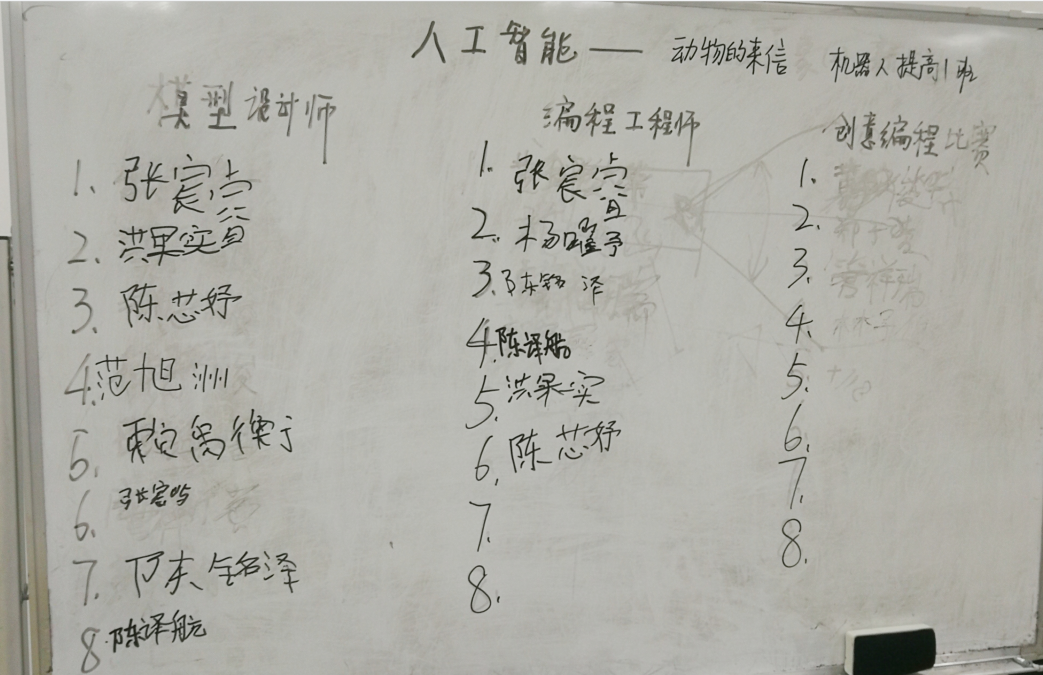 人工智能 — 动物的来信 机器人提高1班
模型设计师
1. 张宸
2. 洪果实
3. 陈芯妤
4. 范旭洲
5. 赖禹衡
6. 张宸
7. 陈铭泽
8. 陈译航
编程工程师
1. 张宸
2. 杨曜予
3. 陈铭泽
4. 陈译船
5. 洪果实
6. 陈芯妤
7.
8.
创意编程比赛
1.
2.
3.
4.
5.
6.
7.
8.